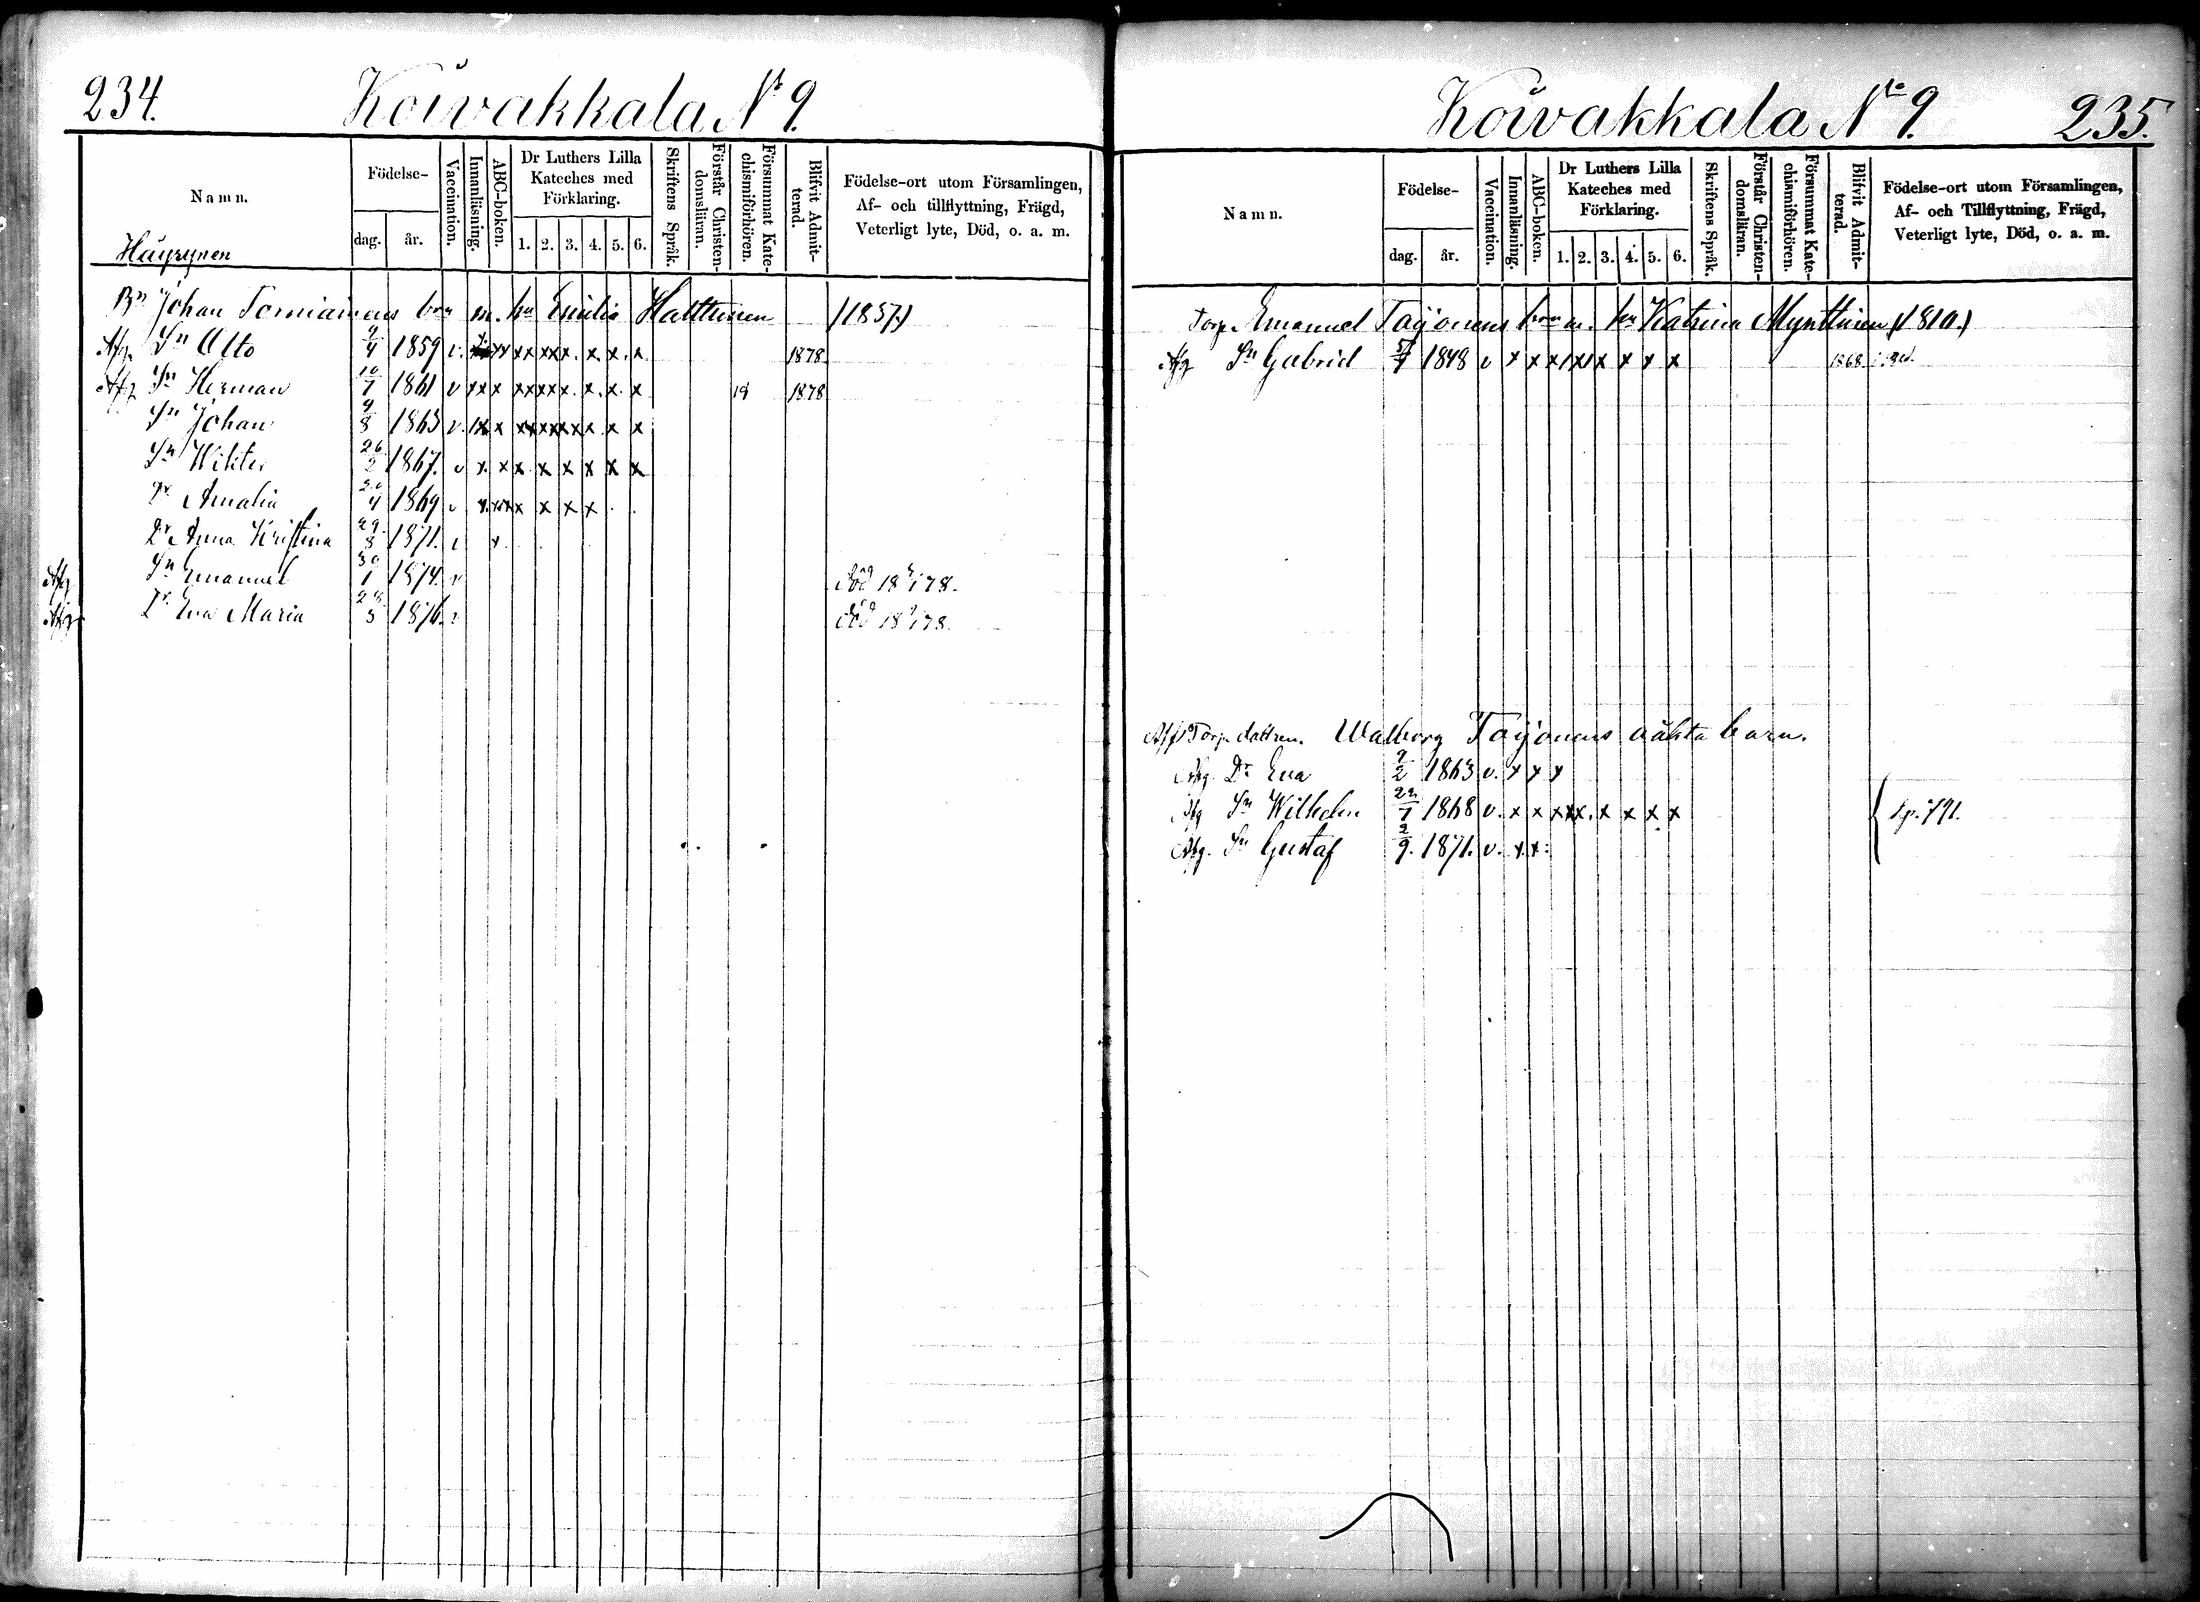 234.
Koivakkala No 9.
Namn.
Födelse-
dag. år.
Vaccination.
Innanläsning.
ABC-boken.
Dr Luthers Lilla Kateches med Förklaring.
1. 2. 3. 4. 5. 6.
Skriftens Språk.
Förstår Christendomsläran.
Försummat Katechismiförhören.
Blifvit Admitterad.
Födelse-ort utom Församlingen,
Af- och tillflyttning, Frägd,
Veterligt lyte, Död, o. a. m.
Häyrynen
Bn Johan Torniainens barn m. hu Emilia Halttunen (1857.)
Afg. Sn Otto 9/4 1859 v. x xx xx xx x. x. x. x 1878
Afg Sn Herman 10/7 1861 v xx x xx xx x. x. x. x 18 1878
Sn Johan 9/8 1863 v. x x x xx xx x x x x
Sn Wikter 26/2 1867. v x. x x x x x x x
Dr Amalia 20/4 1869 v x. xx x x x x
Dr Anna Kristina 29/8 1871. v x.
Afg Sn Emanuel 30/1 1874. v död 18 78.
Afg Dr Eva Maria 28/5 1876. v död 18 78.
Koivakkala No 9.
235.
Namn.
Födelse-
dag. år.
Vaccination.
Innanläsning.
ABC-boken.
Dr Luthers Lilla Kateches med Förklaring.
1. 2. 3. 4. 5. 6.
Skriftens Språk.
Förstår Christendomsläran.
Försummat Katechismiförhören.
Blifvit Admitterad.
Födelse-ort utom Församlingen,
Af- och Tillflyttning, Frägd,
Veterligt lyte, Död, o. a. m.
Torp. Emanuel Toijonens barn m. hu Katrina Mynttinen (1810.)
Afg Sn Gabriel 5/4 1848 v x x x x x x x x 1868.
Afg Torp. dottren. Walborg Toijonens oäkta barn.
Afg. Dr Eva 9/2 1863 v. x x x
Afg Sn Wilhelm 22/7 1868 v. x x x xx. x x x x p. 791.
Afg. Sn Gustaf 2/9. 1871. v. x x.